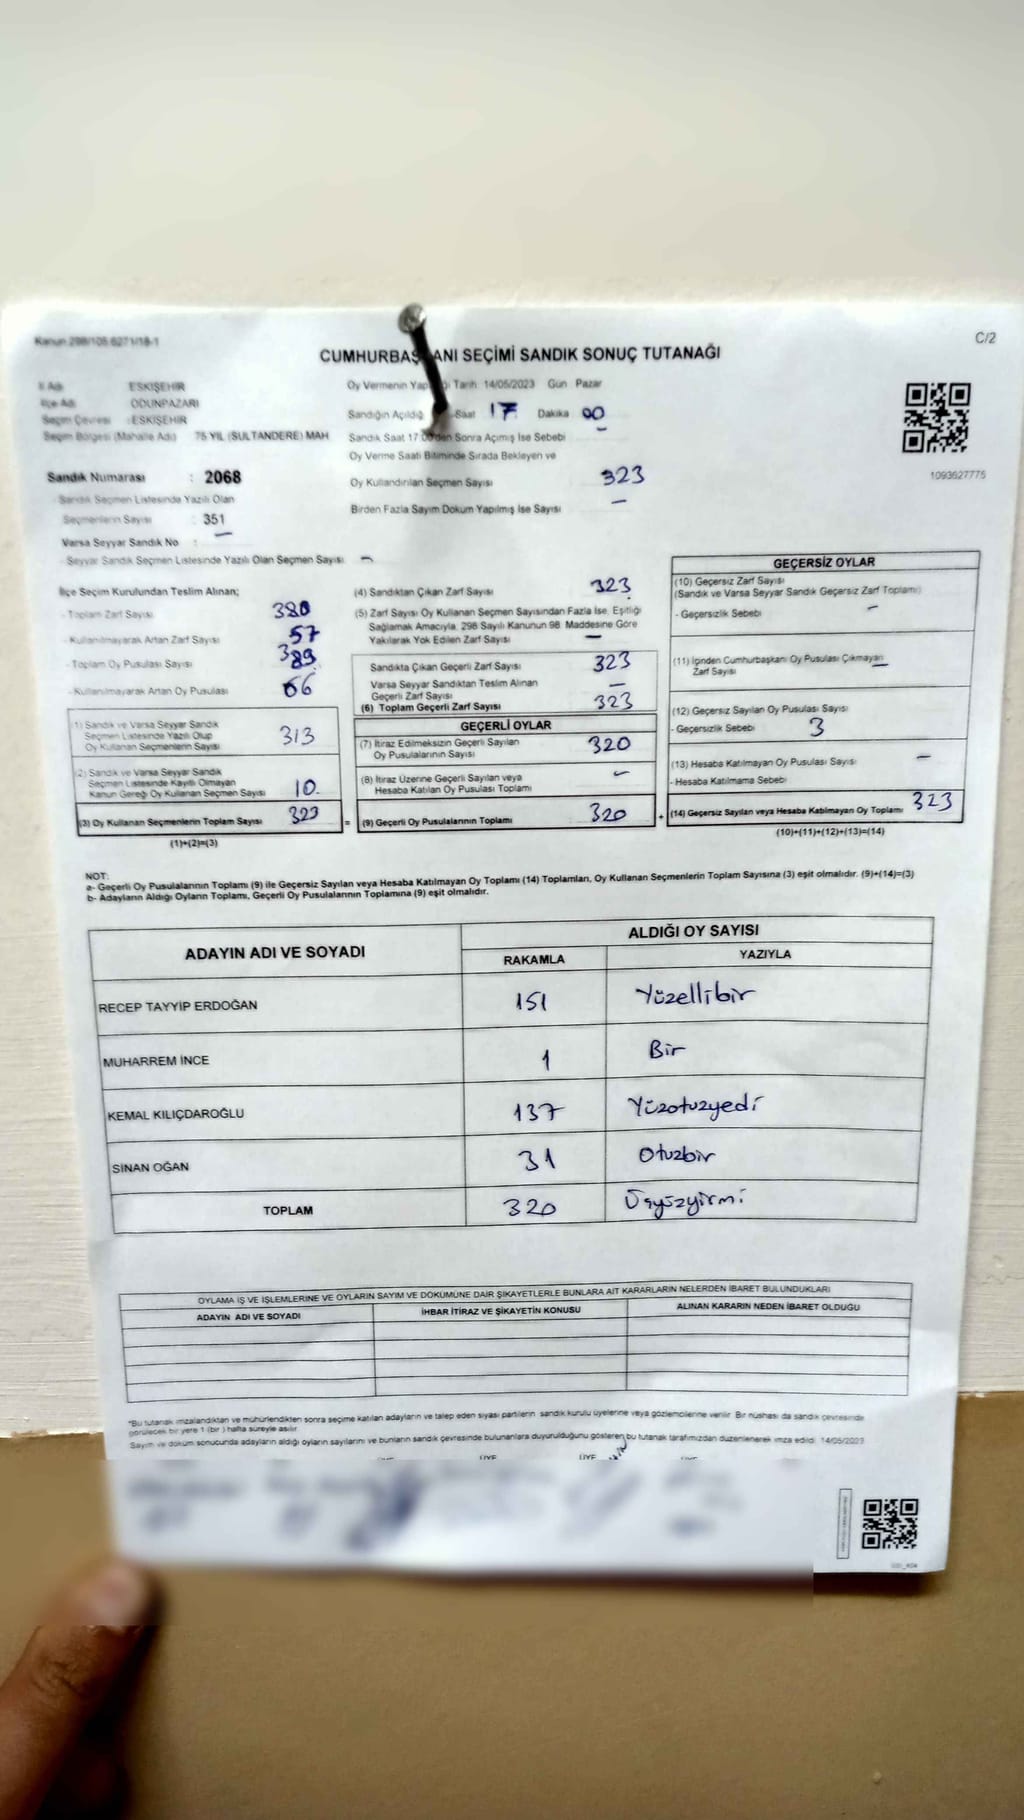 Kanun 298/105 6271/18-1
C/2
CUMHURBAŞKANI SEÇİMİ SANDIK SONUÇ TUTANAĞI
İl Adı ESKİŞEHİR
İlçe Adı ODUNPAZARI
Seçim Çevresi : ESKİŞEHİR
Seçim Bölgesi (Mahalle Adı) 75 YIL (SULTANDERE) MAH
Sandık Numarası : 2068
- Sandık Seçmen Listesinde Yazılı Olan
Seçmenlerin Sayısı : 351
Varsa Seyyar Sandık No : —
- Seyyar Sandık Seçmen Listesinde Yazılı Olan Seçmen Sayısı : —
Oy Vermenin Tarih: 14/05/2023 Gün Pazar
Sandığın Açıldığı Saat 17 Dakika 00
Sandık Saat 17:00'den Sonra Açımış İse Sebebi —
Oy Verme Saati Bitiminde Sırada Bekleyen ve
Oy Kullandırılan Seçmen Sayısı 323
Birden Fazla Sayım Döküm Yapılmış İse Sayısı —
1093627775
İlçe Seçim Kurulundan Teslim Alınan;
- Toplam Zarf Sayısı 380
- Kullanılmayarak Artan Zarf Sayısı 57
- Toplam Oy Pusulası Sayısı 389
- Kullanılmayarak Artan Oy Pusulası 66
1) Sandık ve Varsa Seyyar Sandık
Seçmen Listesinde Yazılı Olup
Oy Kullanan Seçmenlerin Sayısı 313
(2) Sandık ve Varsa Seyyar Sandık
Seçmen Listesinde Kayıtlı Olmayan
Kanun Gereği Oy Kullanan Seçmen Sayısı 10
(3) Oy Kullanan Seçmenlerin Toplam Sayısı 323
(1)+(2)=(3)
(4) Sandıktan Çıkan Zarf Sayısı 323
(5) Zarf Sayısı Oy Kullanan Seçmen Sayısından Fazla İse, Eşitliği
Sağlamak Amacıyla, 298 Sayılı Kanunun 98. Maddesine Göre
Yakılarak Yok Edilen Zarf Sayısı —
Sandıkta Çıkan Geçerli Zarf Sayısı 323
Varsa Seyyar Sandıktan Teslim Alınan
Geçerli Zarf Sayısı —
(6) Toplam Geçerli Zarf Sayısı 323
GEÇERLİ OYLAR
(7) İtiraz Edilmeksizin Geçerli Sayılan
Oy Pusulalarının Sayısı 320
(8) İtiraz Üzerine Geçerli Sayılan veya
Hesaba Katılan Oy Pusulası Toplamı —
= (9) Geçerli Oy Pusulalarının Toplamı 320
GEÇERSİZ OYLAR
(10) Geçersiz Zarf Sayısı
(Sandık ve Varsa Seyyar Sandık Geçersiz Zarf Toplamı)
- Geçersizlik Sebebi —
(11) İçinden Cumhurbaşkanı Oy Pusulası Çıkmayan
Zarf Sayısı —
(12) Geçersiz Sayılan Oy Pusulası Sayısı
- Geçersizlik Sebebi 3
(13) Hesaba Katılmayan Oy Pusulası Sayısı —
- Hesaba Katılmama Sebebi
+ (14) Geçersiz Sayılan veya Hesaba Katılmayan Oy Toplamı 323
(10)+(11)+(12)+(13)=(14)
NOT:
a- Geçerli Oy Pusulalarının Toplamı (9) ile Geçersiz Sayılan veya Hesaba Katılmayan Oy Toplamı (14) Toplamları, Oy Kullanan Seçmenlerin Toplam Sayısına (3) eşit olmalıdır. (9)+(14)=(3)
b- Adayların Aldığı Oyların Toplamı, Geçerli Oy Pusulalarının Toplamına (9) eşit olmalıdır.
ADAYIN ADI VE SOYADI ALDIĞI OY SAYISI
RAKAMLA YAZIYLA
RECEP TAYYİP ERDOĞAN 151 Yüzellibir
MUHARREM İNCE 1 Bir
KEMAL KILIÇDAROĞLU 137 Yüzotuzyedi
SİNAN OĞAN 31 Otuzbir
TOPLAM 320 Üçyüzyirmi
OYLAMA İŞ VE İŞLEMLERİNE VE OYLARIN SAYIM VE DÖKÜMÜNE DAİR ŞİKAYETLERLE BUNLARA AİT KARARLARIN NELERDEN İBARET BULUNDUKLARI
ADAYIN ADI VE SOYADI İHBAR İTİRAZ VE ŞİKAYETİN KONUSU ALINAN KARARIN NEDEN İBARET OLDUĞU
*Bu tutanak imzalandıktan ve mühürlendikten sonra seçime katılan adayların ve talep eden siyasi partilerin sandık kurulu üyelerine veya gözlemcilerine verilir. Bir nüshası da sandık çevresinde
görülecek bir yere 1 (bir) hafta süreyle asılır.
Sayım ve döküm sonucunda adayların aldığı oyların sayılarını ve bunların sandık çevresinde bulunanlara duyurulduğunu gösteren bu tutanak tarafımızdan düzenlenerek imza edildi. 14/05/2023
ÜYE ÜYE ÜYE ÜYE